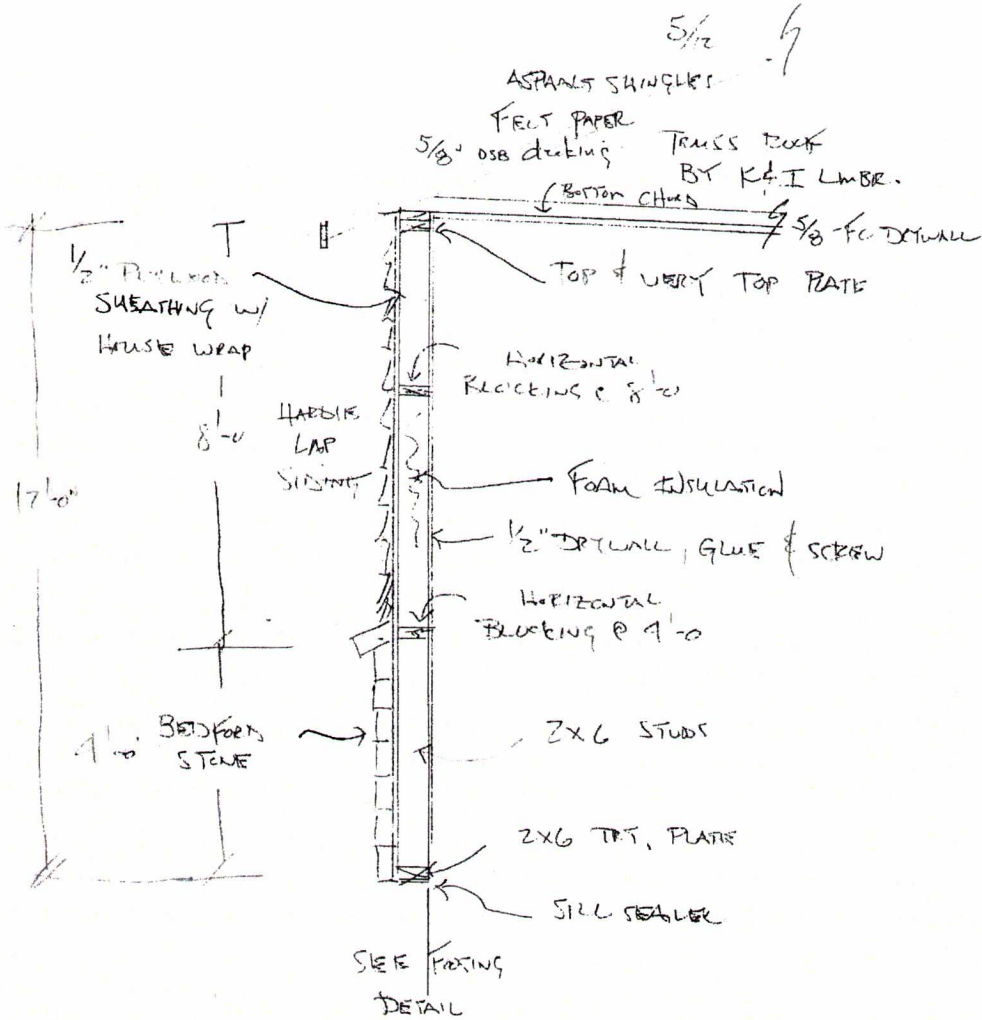 5/12
ASPHALT SHINGLES
FELT PAPER
5/8" OSB decking
TRUSS ROOF
BY K&I LMBR.
BOTTOM CHORD
5/8 FC DRYWALL
1/2"
SHEATHING W/
HOUSE WRAP
TOP & VERY TOP PLATE
HORIZONTAL
BLOCKING @ 8'-0
8'-0
HARDIE
LAP
SIDING
12'-0"
FOAM INSULATION
1/2" DRYWALL, GLUE & SCREW
HORIZONTAL
BLOCKING @ 4'-0
4'-0"
BEDFORD
STONE
2X6 STUDS
2X6 TRT. PLATE
SILL SEALER
SEE FOOTING
DETAIL